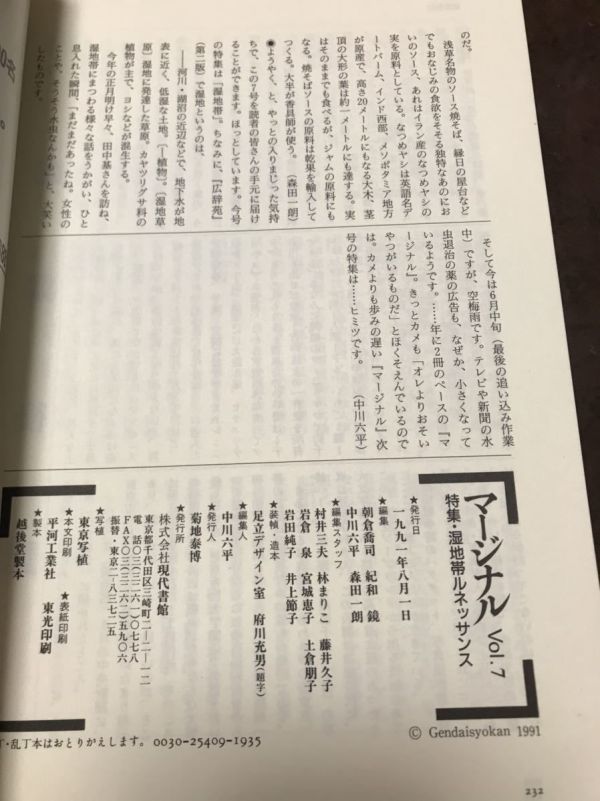 のだ。
浅草名物のソース焼そば、縁日の屋台など
でもおなじみの食欲をそそる独特なあのにお
いのソース、あれはイラン産のなつめヤシの
実を原料としている。なつめヤシは英語名デ
ートパーム、インド西部、メソポタミア地方
が原産で、高さ20メートルにもなる大木、茎
頂の大形の葉は約一メートルにも達する。実
はそのままでも食べるが、ジャムの原料にも
なる。焼そばソースの原料は乾果を輸入して
つくる。大半が香具師が使う。（森田一朗）
◉ようやく、と、やっとの入りまじった気持
ちで、この7号を読者の皆さんの手元に届け
ることができます。ほっとしています。今号
の特集は「湿地帯」。ちなみに、『広辞苑』
（第二版）で湿地というのは、
――河川・湖沼の近辺などで、地下水が地
表に近く、低湿な土地。（―植物）。〔湿地草
原〕湿地に発達した草原。カヤツリグサ科の
植物が主で、ヨシなどが混生する。
今年の正月明け早々、田中基さんを訪ね、
湿地帯にまつわる様々な話をうかがい、ひと
息入れた瞬間、「まだまだあったね。女性の
ことや、そうそう水虫なんかも」と、大笑い
したものです。
そして今は6月中旬（最後の追い込み作業
中）ですが、空梅雨です。テレビや新聞の水
虫退治の薬の広告も、なぜか、小さくなって
いるようです。……年に2冊のペースの『マ
ージナル』。きっとカメも「オレよりおそい
やつがいるものだ」とほくそえんでいるので
は。カメよりも歩みの遅い『マージナル』次
号の特集は……ヒミツです。
（中川六平）
マージナル Vol.7
特集・湿地帯ルネッサンス
★発行日
一九九一年八月一日
★編集
朝倉喬司 紀和 鏡
中川六平 森田一朗
★編集スタッフ
村井三夫 林まりこ 藤井久子
岩倉 泉 宮城恵子 土倉朋子
岩田純子 井上節子
★装幀・造本
足立デザイン室 府川充男(題字)
★編集人
中川六平
★発行人
菊地泰博
★発行所
株式会社現代書館
東京都千代田区三崎町二―二―一二
電 話〇三(三二六一)〇七七八
FAX〇三(三二六二)五九〇六
振替・東京二―八三七二五
★写植
東京写植
★本文印刷 ★表紙印刷
平河工業社 東光印刷
★製本
越後堂製本
© Gendaisyokan 1991
丁・乱丁本はおとりかえします。 0030-25409-1935
232